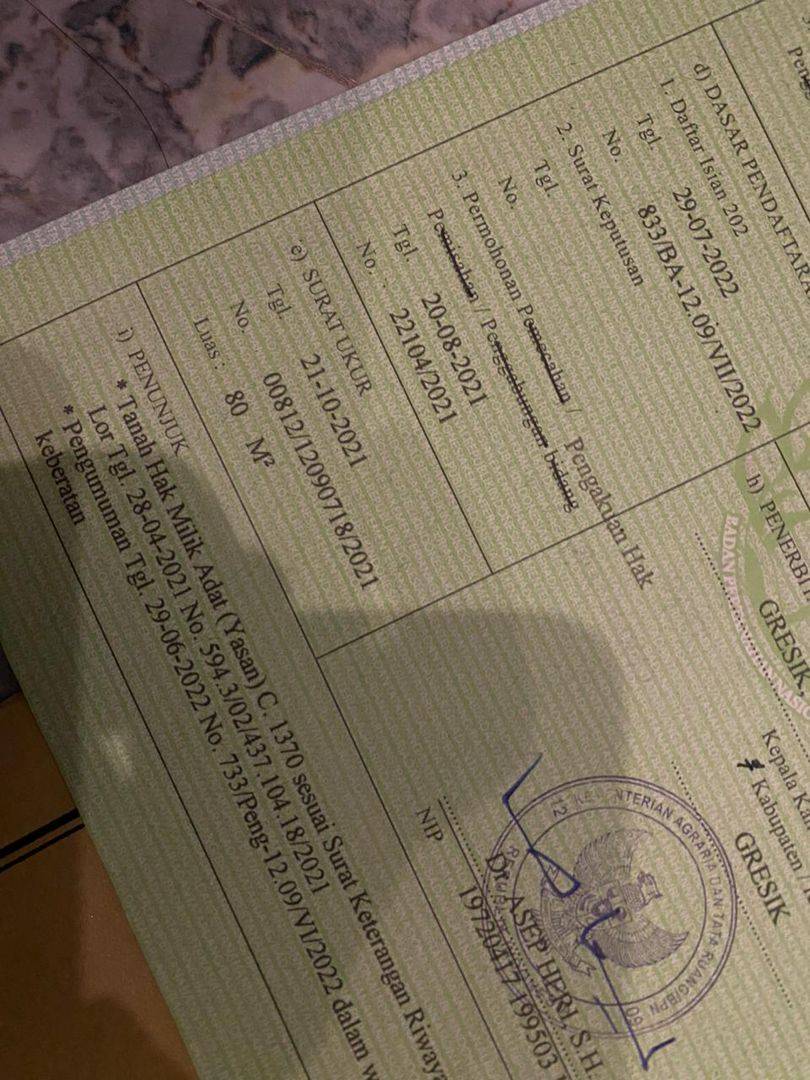 d) DASAR PENDAFTARA
1. Daftar Isian 202
Tgl. 29-07-2022
No. 833/BA-12.09/VII/2022
2. Surat Keputusan
Tgl.
No.
3. Permohonan Pemecahan /
Pemisahan / Penggabungan bidang
Pengakuan Hak
Tgl. 20-08-2021
No. : 22104/2021
e) SURAT UKUR
Tgl. 21-10-2021
No. 00812/12090718/2021
Luas : 80 M²
h) PENERBI
GRESIK,
Kepala Ka
* Kabupaten /
GRESIK
KEMENTERIAN AGRARIA DAN TATA RUANG/BPN
Dr. ASEP HERI, S.H.
NIP 19720417 199503
i) PENUNJUK
* Tanah Hak Milik Adat (Yasan) C. 1370 sesuai Surat Keterangan Riwaya
Lor Tgl. 28-04-2021 No. 594.3/02/437.104.18/2021
* Pengumuman Tgl. 29-06-2022 No. 733/Peng-12.09/VI/2022 dalam w
keberatan